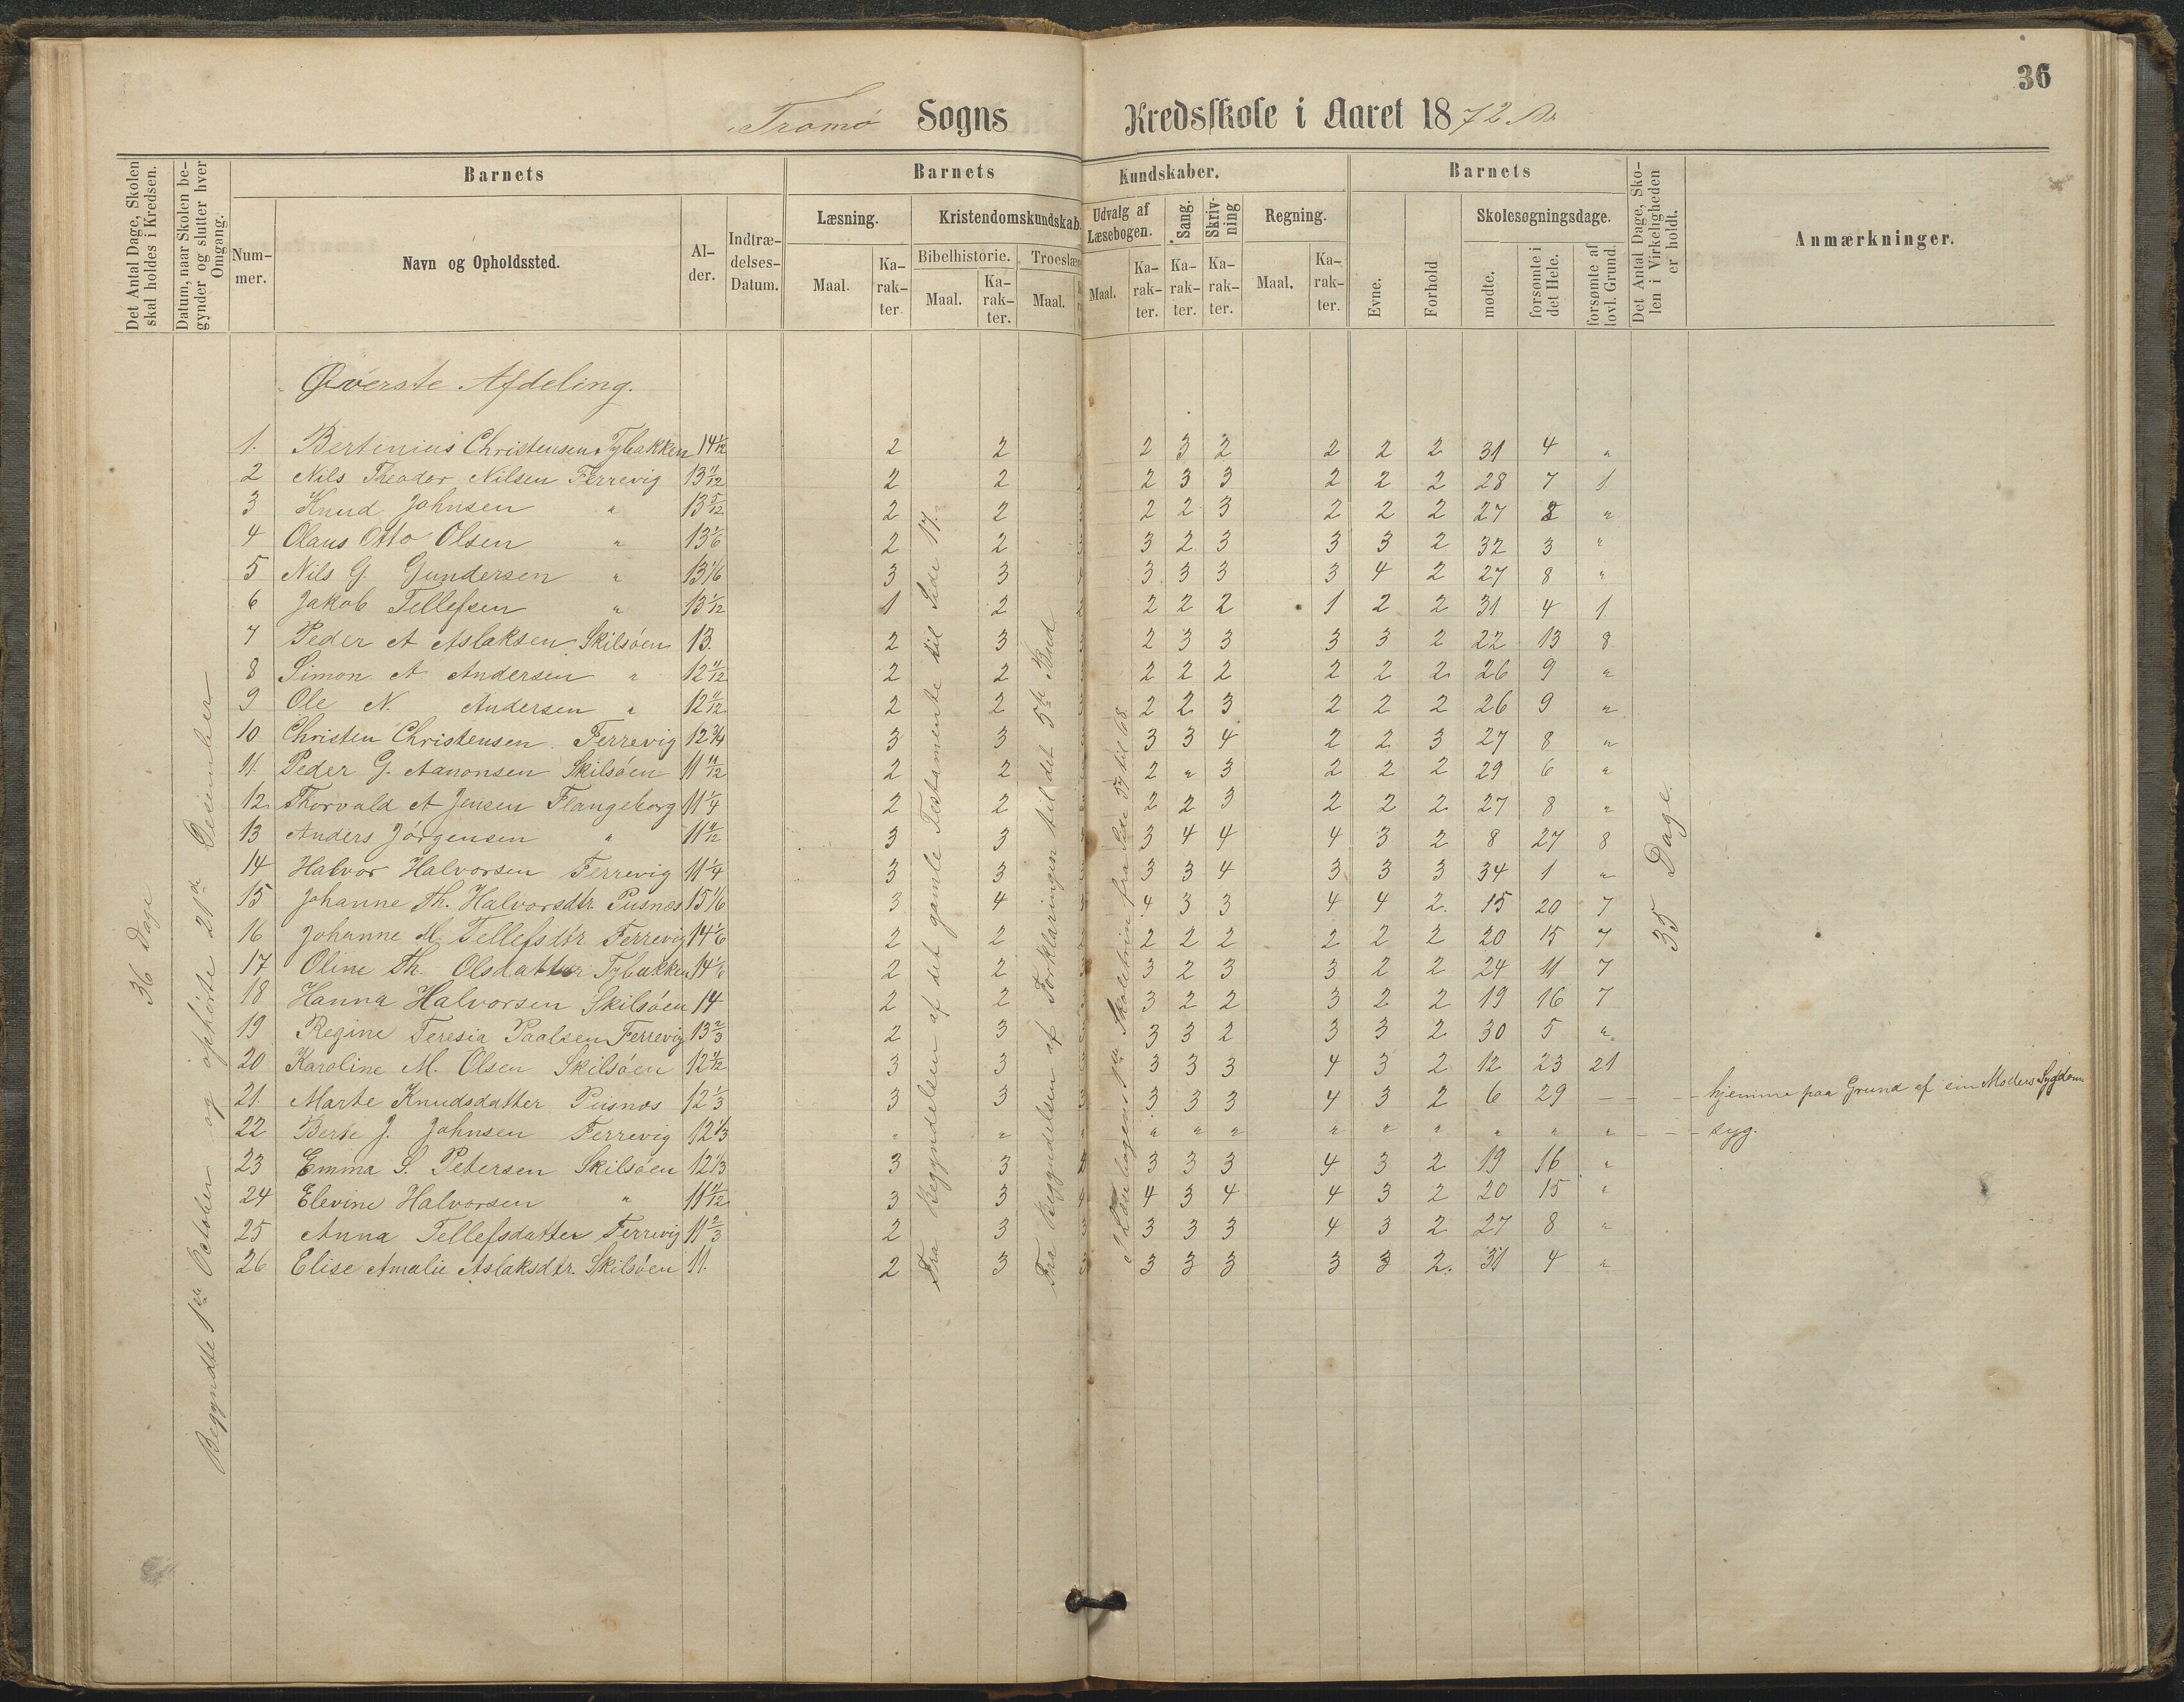 36
Tromø Sogns Kredsskole i Aaret 1872
Det Antal Dage, Skolen skal holdes i Kredsen.
Datum, naar Skolen begynder og slutter hver Omgang.
Barnets
Barnets Kundskaber.
Barnets
Det Antal Dage, Skolen i Virkeligheden er holdt.
Anmærkninger.
Nummer.
Navn og Opholdssted.
Alder.
Indtrædelses-Datum.
Læsning.
Kristendomskundskab.
Udvalg af Læsebogen.
Sang.
Skrivning
Regning.
Evne.
Forhold
Skolesøgningsdage.
Bibelhistorie.
Troeslære
Maal. Karakter Maal. Karakter. Maal. Maal. Karakter. Karakter. Karakter. Maal. Karakter.
mødte. forsømte i det Hele. forsømte af lovl. Grund.
36 Dage
Begyndte 1ste October og ophørte 21de Desember
Øverste Afdeling.
1. Bertinius Christensen Tybakken 14 1/12 2 2 2 3 2 2 2 2 31 4 "
2 Nils Theodor Nilsen Færrevig 13 11/12 2 2 2 3 3 2 2 2 28 7 1
3 Knud Johnsen " 13 5/12 2 2 2 2 3 2 2 2 27 8 "
4 Olaus Otto Olsen " 13 1/6 2 2 3 2 3 3 3 2 32 3 "
5 Nils G. Gundersen " 13 1/6 3 3 3 3 3 3 4 2 27 8 "
6 Jakob Tellefsen " 13 1/12 1 2 2 2 2 1 2 2 31 4 1
7 Peder A Aslaksen Skilsøen 13. 2 3 2 3 3 3 3 2 22 13 8
8 Simon A Andersen " 12 11/12 2 2 2 2 2 2 2 2 26 9 "
9 Ole N. Andersen " 12 11/12 2 2 2 2 3 2 2 2 26 9 "
10 Christen Christensen. Færrevig 12 3/4 3 3 3 3 4 2 2 3 27 8 "
11. Peder G. Aanonsen Skilsøen 11 11/12 2 2 2 " 3 2 2 2 29 6 "
12. Thorvald A Jensen Flangeborg 11 1/4 2 2 2 2 3 2 2 2 27 8 "
13 Anders Jørgensen " 11 11/12 3 3 3 4 4 4 3 2 8 27 8
14 Halvor Halvorsen Færrevig 11 1/4 3 3 3 3 4 3 3 3 34 1 "
15 Johanne Th. Halvorsdtr. Pusnæs 15 1/6 3 4 4 3 3 4 4 2. 15 20 7
16 Johanne M. Tellefsdtr Færrevig 14 1/6 2 2 2 2 2 2 2 2 20 15 7
17 Oline Th. Olsdatter Tybakken 14 1/6 2 2 3 2 3 3 2 2 24 11 7
18 Hanna Halvorsen Skilsøen 14 2 2 3 2 2 3 2 2 19 16 7
19 Regine Teresia Paalsen Færrevig 13 2/3 2 3 3 3 2 3 3 2 30 5 "
20 Karoline M. Olsen Skilsøen 12 11/12 3 3 3 3 3 4 3 2 12 23 21
21. Marte Knudsdatter Pusnæs 12 1/3 3 3 3 3 3 4 3 2 6 29 — — — hjemme paa Grund af sin Moders Sygdom
22 Berte J. Johnsen Færrevig 12 1/3 " " " " " " " " " " " — — — syg.
23 Emma S. Petersen Skilsøen 12 1/3 3 3 3 3 3 4 3 2 19 16 "
24 Elevine Halvorsen " 11 11/12 3 3 4 3 4 4 3 2 20 15 "
25 Anna Tellefsdatter Færrevig 11 2/3 2 3 3 3 3 4 3 2 27 8 "
26 Elise Amalie Aslaksdtr. Skilsøen 11. 2 3 3 3 3 3 3 2. 31 4 "
Fra Begyndelsen af det gamle Testamente til Side 17.
Fra Begyndelsen af Forklaringen til det 5te Bud
I Læsebogens 1ste Skoletrin fra Side 59 til 68
35 Dage.